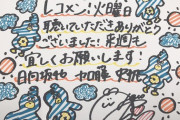 レコメン!火曜日
聴いていただきありがとう
ございました!来週も
宜しくお願いします!
日向坂46 加藤史帆